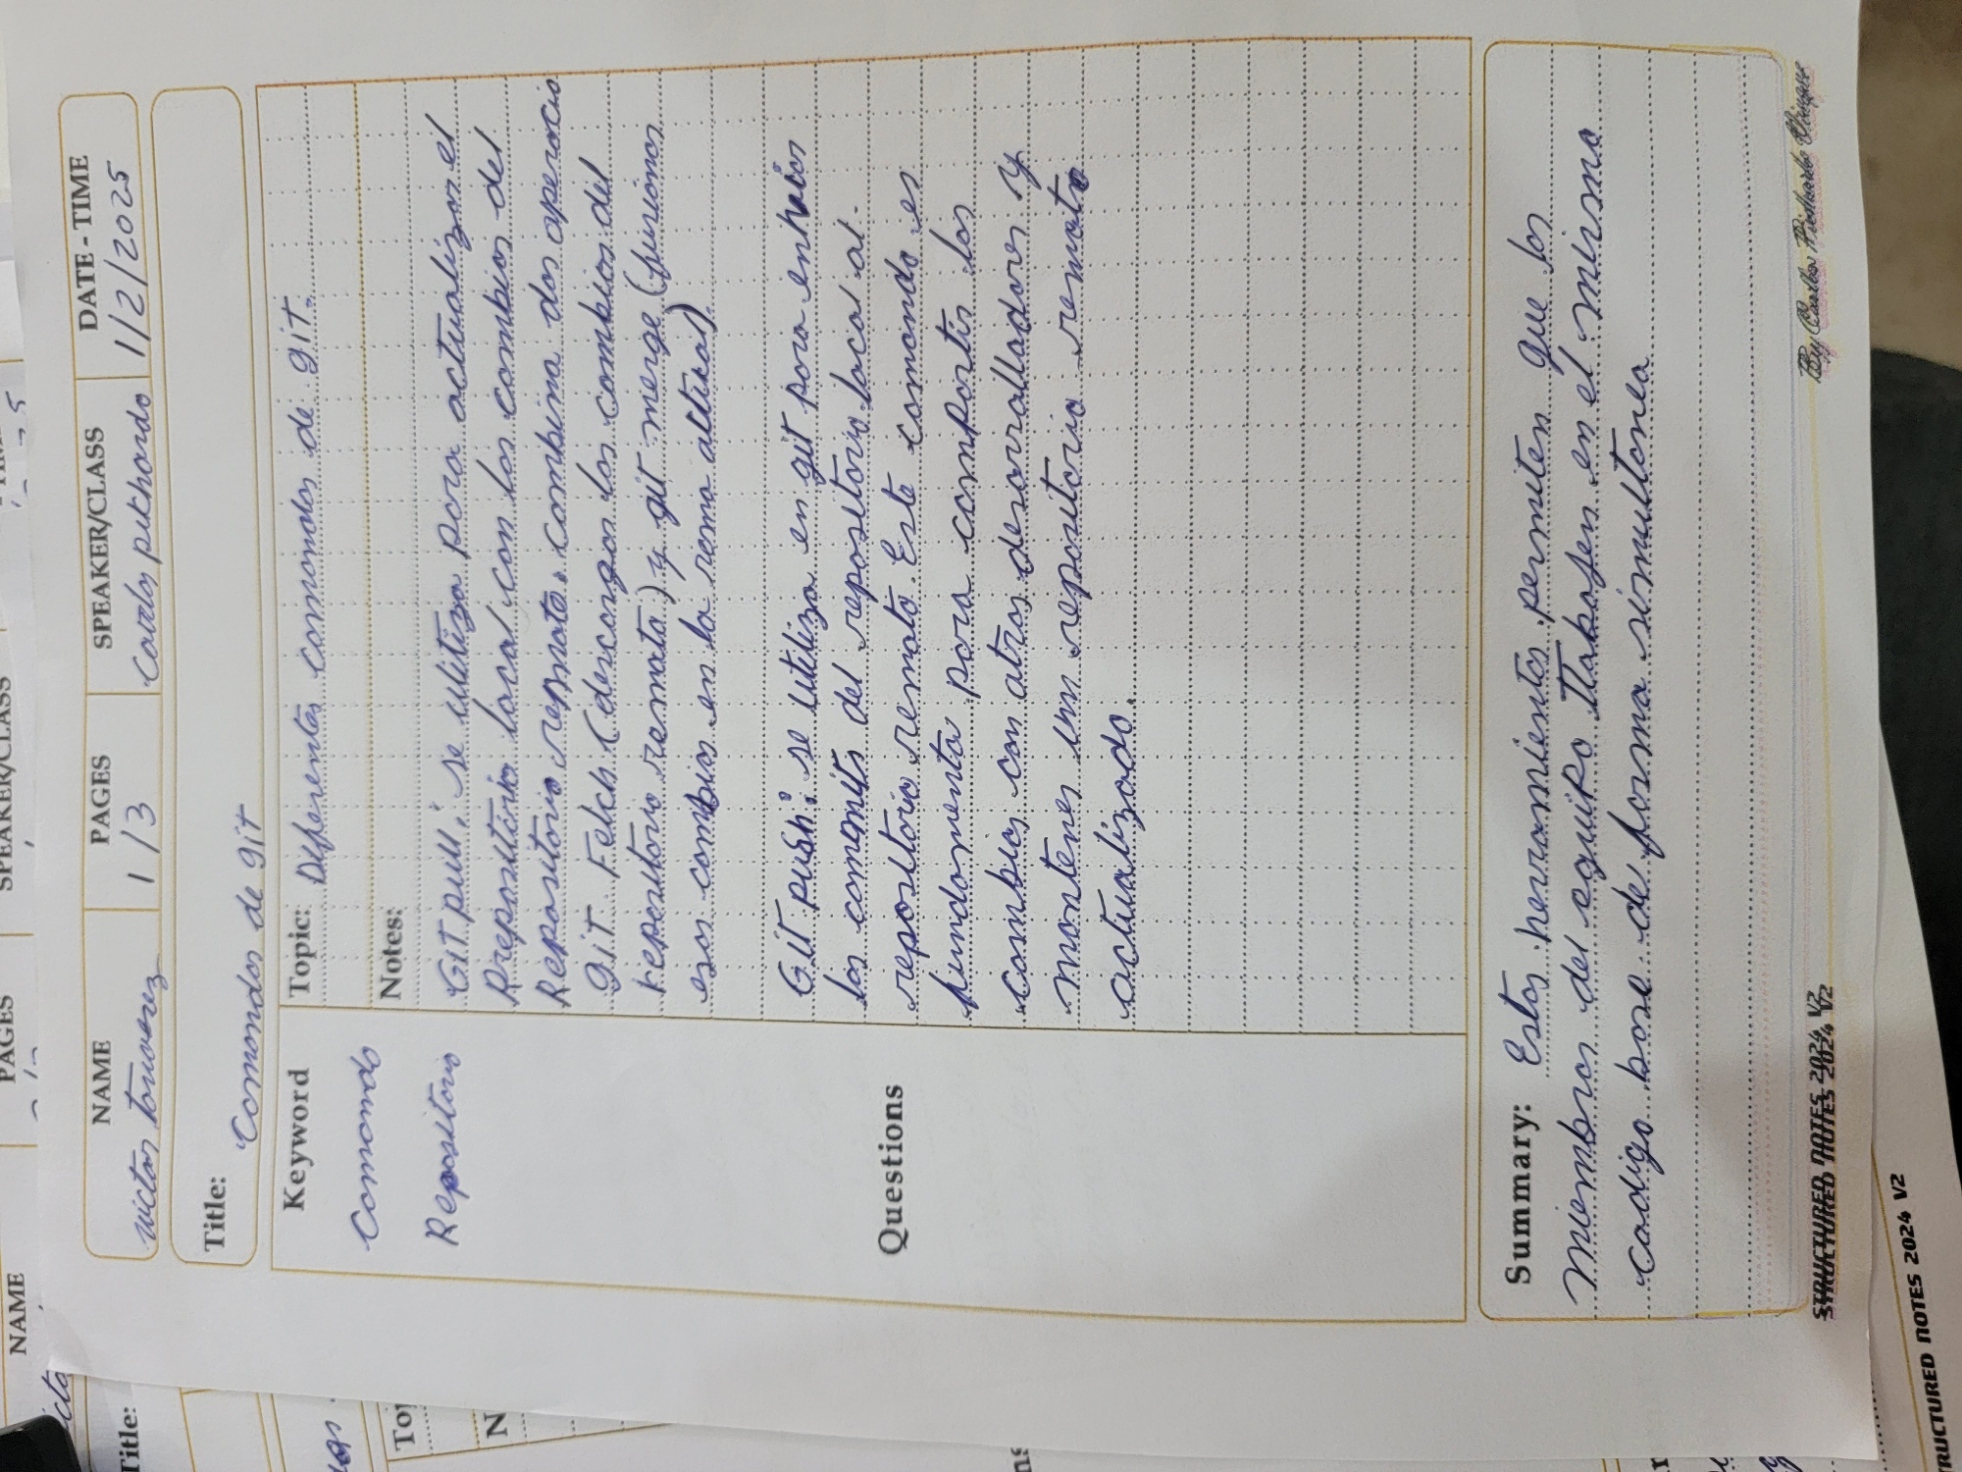 NAME
PAGES
SPEAKER/CLASS
Title:
NAME
PAGES
SPEAKER/CLASS
DATE - TIME
victor tavarez
1/3
Carlos pichardo
1/2/2025
Title:
Comandos de git
Keyword
Topic: Diferentes comandos de git.
Comando
Notes:
Repositorio
Git pull: se utiliza para actualizar el
Rrepositorio local con los cambios del
Repositorio remoto. combina dos operacio
git Fetch (descargar los cambios del
repositorio remoto) y git merge (fusionar
esos cambios en la rama actual)
Git push: se utiliza en git para enviar
los commits del repositorio local al
repositorio remoto. Este comando es
fundamenta para compartir los
cambios con otros desarrolladores y
mantener un repositorio remoto
actualizado.
Questions
Summary: Estas herramientas permiten que los
miembros del equipo trabajen en el mismo
codigo base de forma simultanea
STRUCTURED NOTES 2024 V2
By Carlos Pichardo Vinque
STRUCTURED NOTES 2024 V2